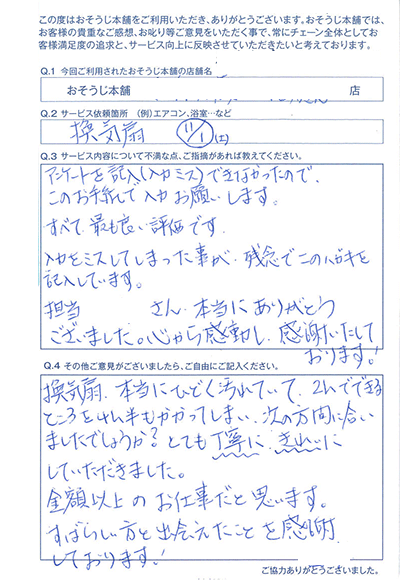 この度はおそうじ本舗をご利用いただき、ありがとうございます。おそうじ本舗では、
お客様の貴重なご感想、お叱り等ご意見をいただく事で、常にチェーン全体としてお
客様満足度の追求と、サービス向上に反映させていただきたいと考えております。
Q.1 今回ご利用されたおそうじ本舗の店舗名
おそうじ本舗 店
Q.2 サービス依頼箇所 (例)エアコン、浴室…など
換気扇 11/1(土)
Q.3 サービス内容について不満な点、ご指摘があれば教えてください。
アンケートを記入(入力ミス)できなかったので、
このお手紙で入力お願いします。
すべて最も良い評価です。
入力をミスしてしまった事が、残念でこのハガキを
記入しています。
担当 さん、本当にありがとう
ございました。心から感動し、感謝いたして
おります!
Q.4 その他ご意見がございましたら、ご自由にご記入ください。
換気扇、本当にひどく汚れていて、2hでできる
ところを4h半もかかってしまい、次の方間に合い
ましたでしょうか?とても丁寧に、きれいに
していただきました。
金額以上のお仕事だと思います。
すばらしい方と出会えたことを感謝
しております!
ご協力ありがとうございました。